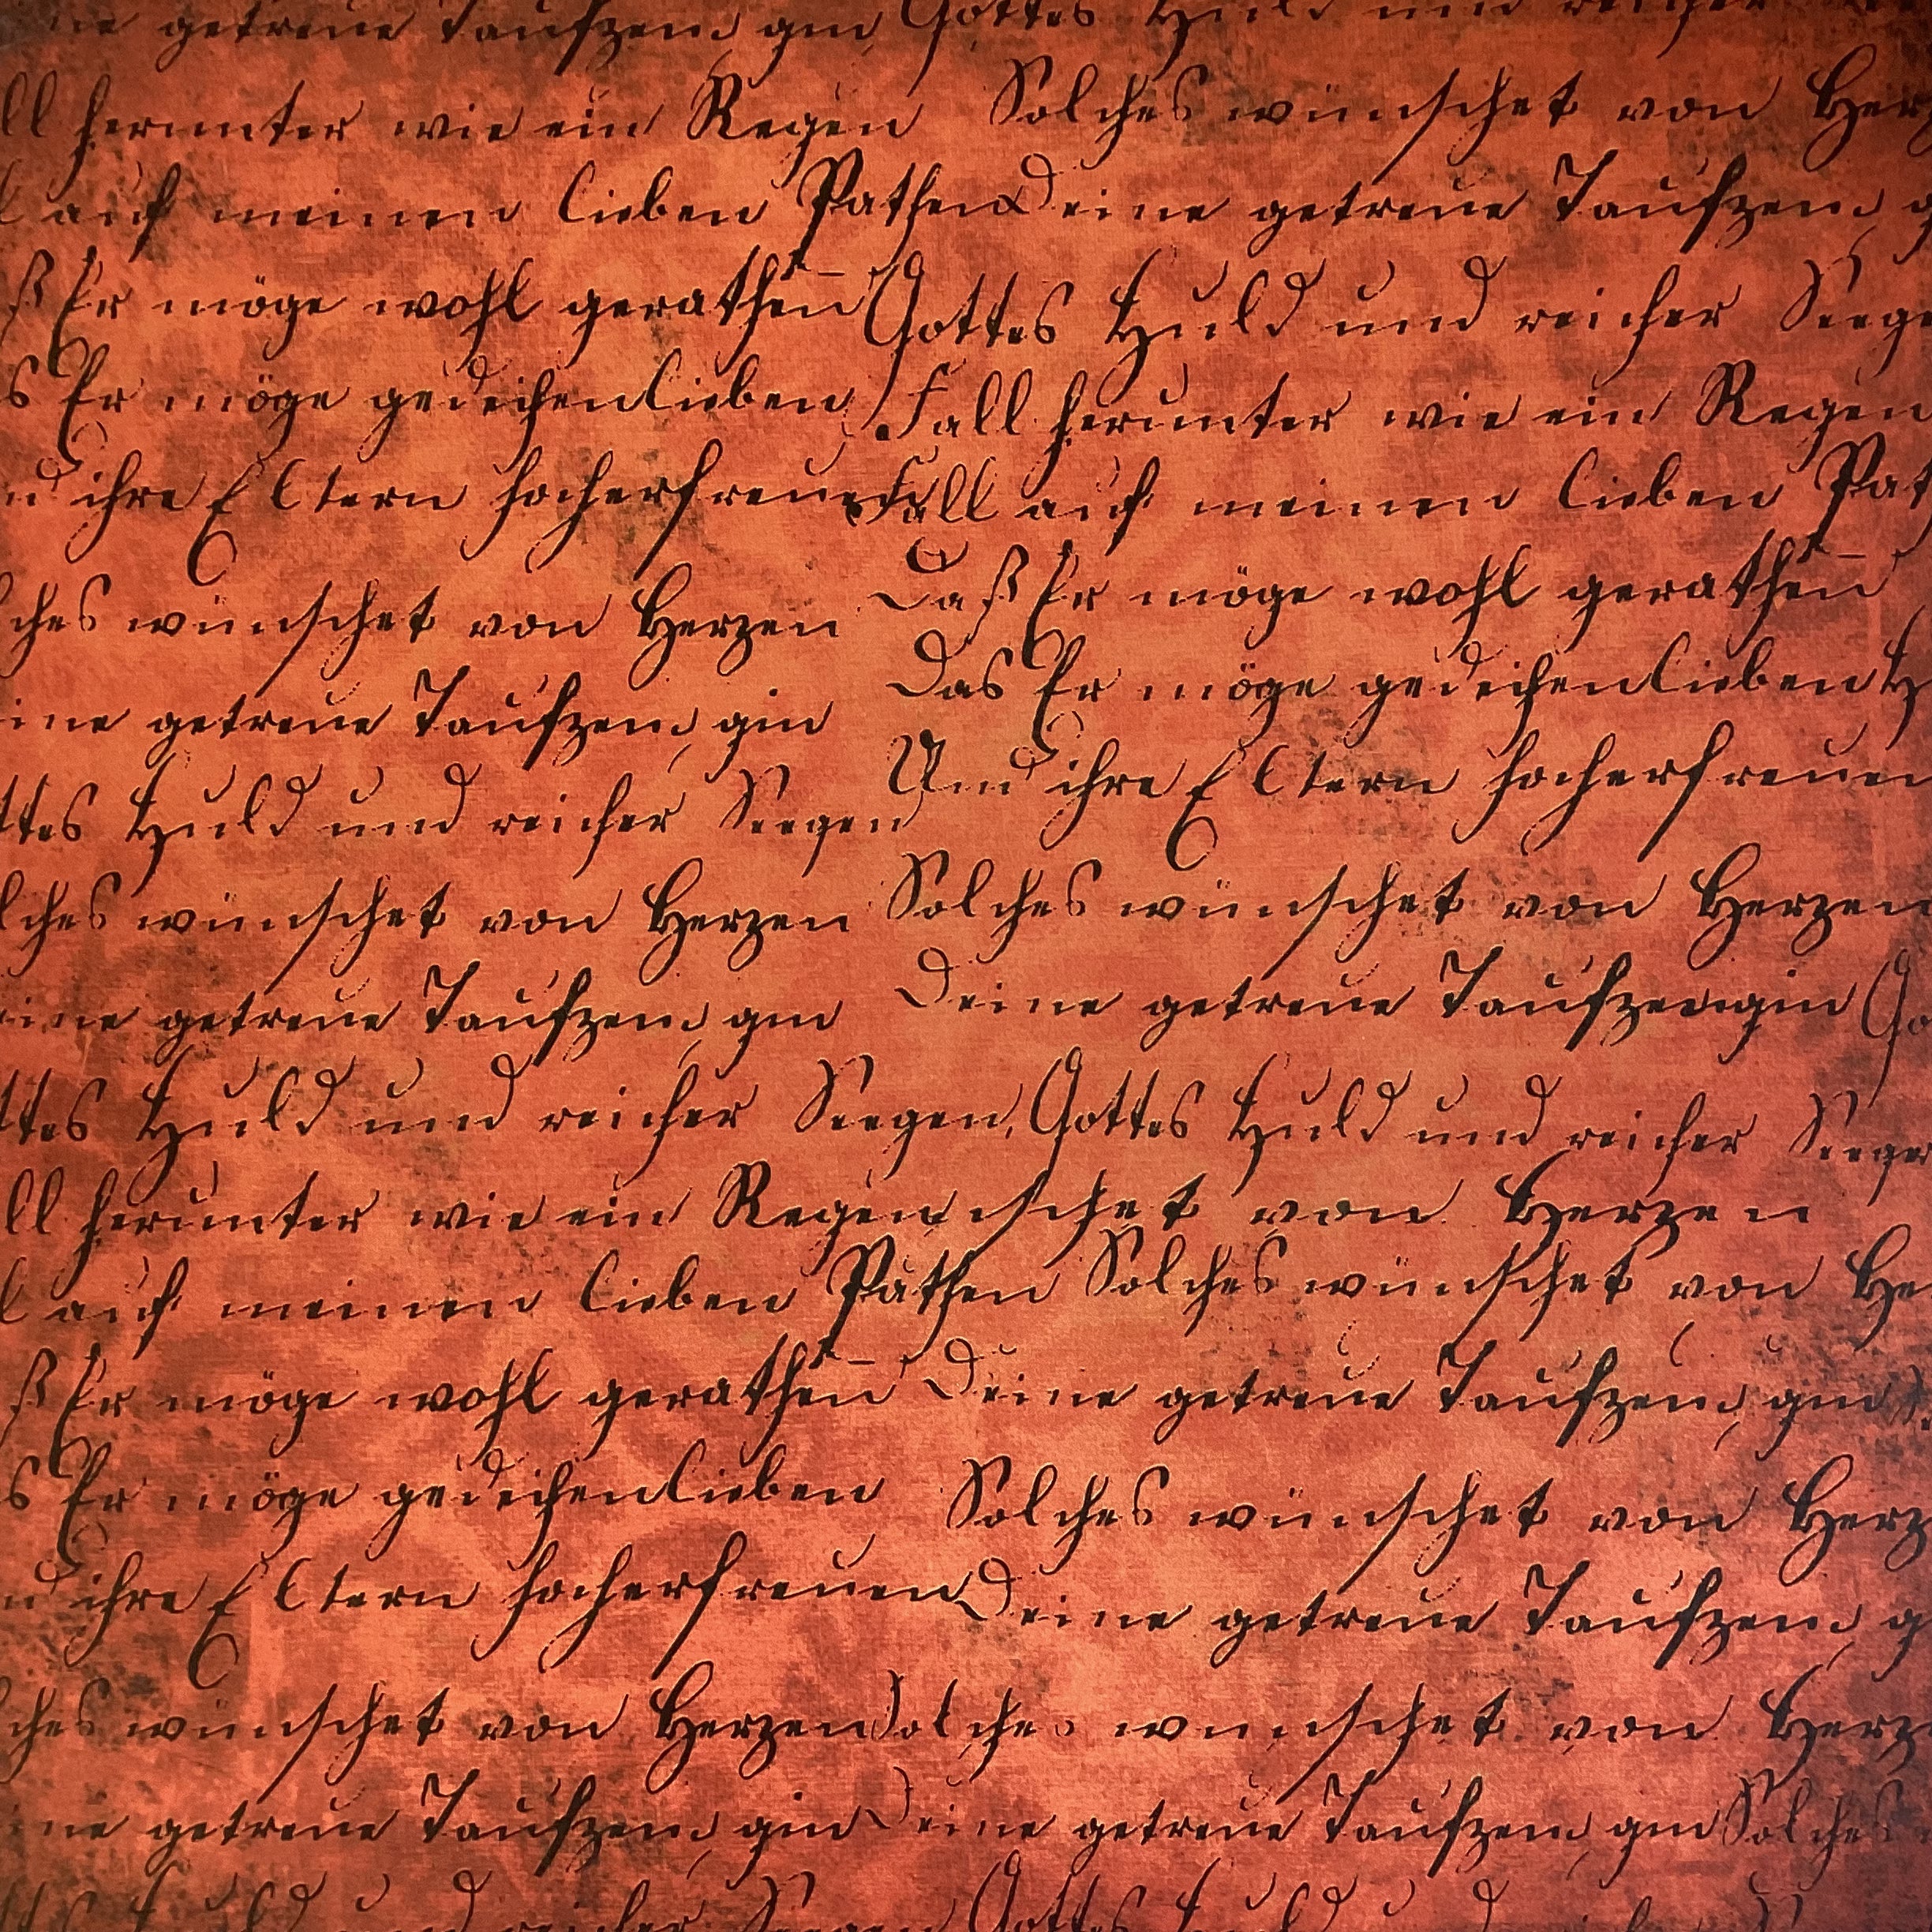 ine getreue Taufzeun gin Gottes Huld und reicher
ll herunter wie ein Regen Solches wünschet von Herz
l auf meinen lieben Pathen Deine getreue Taufzeun g
ß Er möge wohl gerathen Gottes Huld und reicher Seege
s Er möge gedeihen lieben Fall herunter wie ein Regen
nd ihre Eltern hocherfreuen Fall auf meinen lieben Pat
lches wünschet von Herzen Daß Er möge wohl gerathen
eine getreue Taufzeun gin Das Er möge gedeihen lieben H
ttes Huld und reicher Seegen Und ihre Eltern hocherfreuen
lches wünschet von Herzen Solches wünschet von Herzen
eine getreue Taufzeun gin Deine getreue Taufzeugin Go
ttes Huld und reicher Seegen, Gottes Huld und reicher Seegen
ll herunter wie ein Regen schet von Herzen
l auf meinen lieben Pathen Solches wünschet von He
ß Er möge wohl gerathen Deine getreue Taufzeun gin
s Er möge gedeihen lieben Solches wünschet von Herz
nd ihre Eltern hocherfreuen Deine getreue Taufzeun g
lches wünschet von Herzen Solches wünschet von Herz
ine getreue Taufzeun gin Deine getreue Taufzeun gin Solches
ttes Huld und reicher Seegen Gottes Huld und reicher